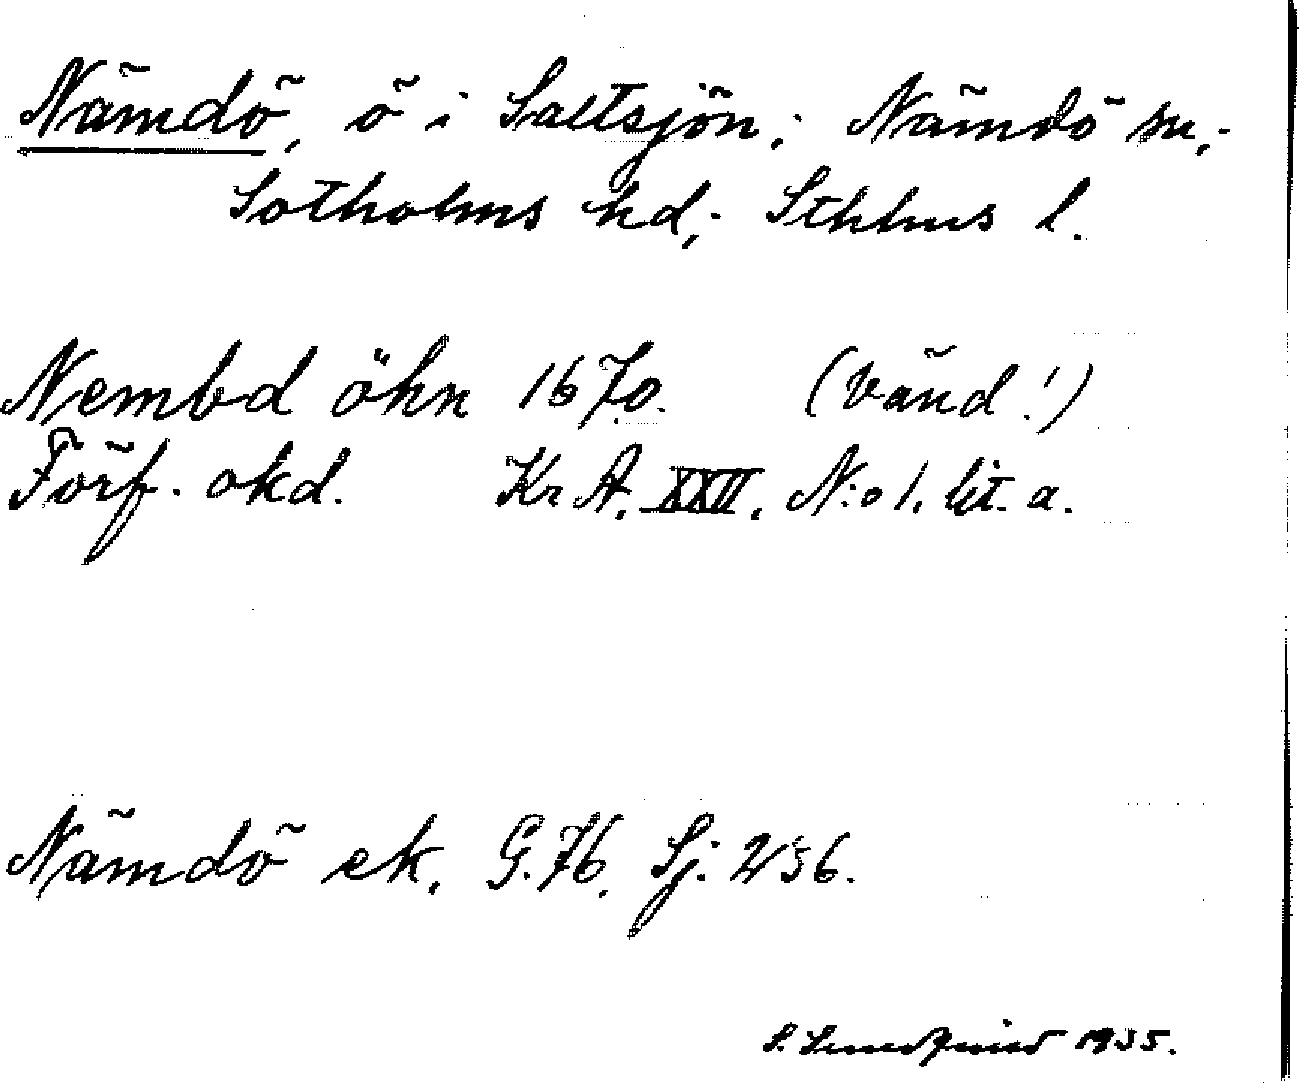 Nämdö, ö i Saltsjön; Nämdö sn,
Sotholms hd, Sthlms l.
Nembd öhn 1670. (vänd!)
Förf. okd. Kr A. XXVI. N:o 1. lit. a.
Nämdö ek. G.76. Sj: 236.
S. 1935.